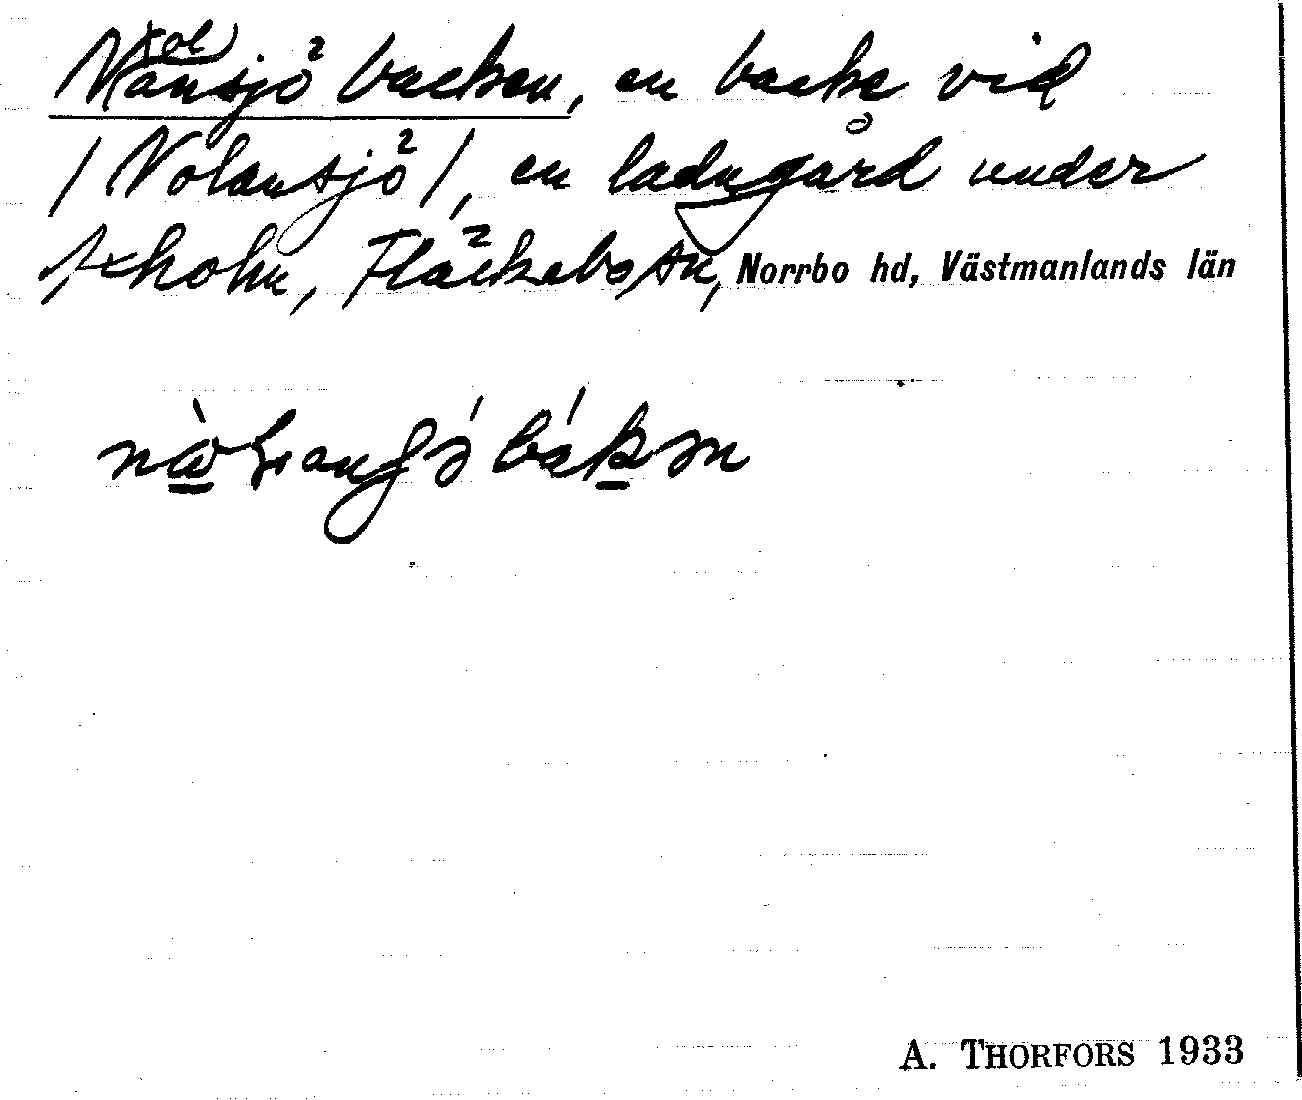 Nolansjöbacken, en backe vid
/Nolansjö/, en ladugård under
Axholm, Fläckebo sn, Norrbo hd, Västmanlands län
A. THORFORS 1933